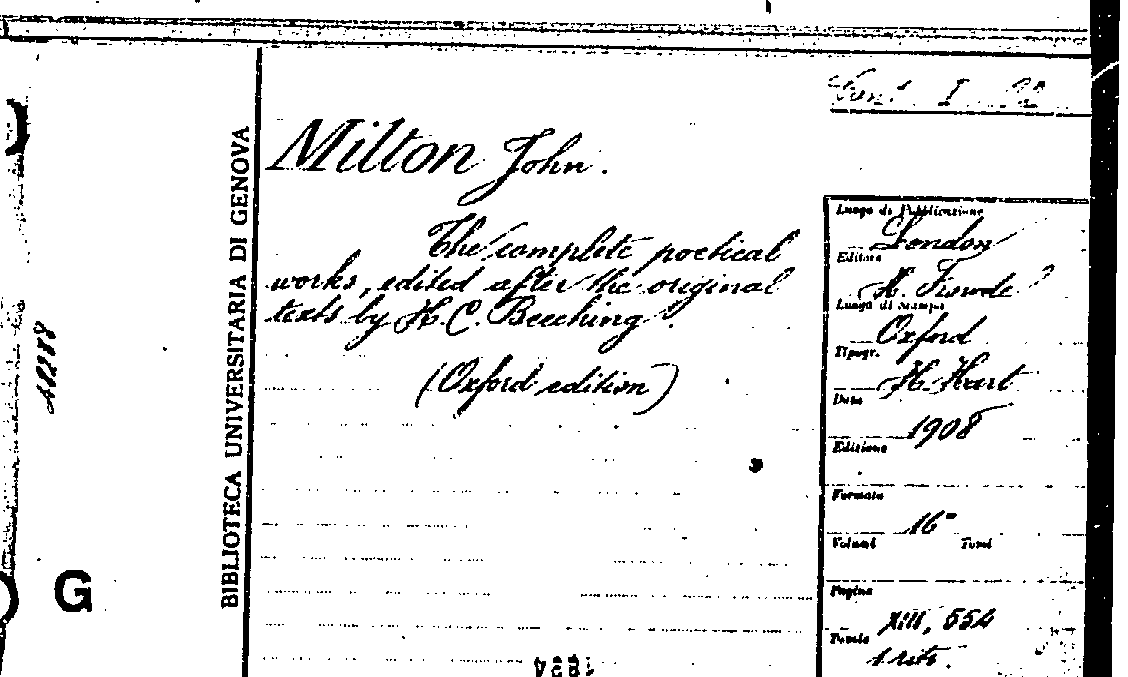 I
Milton John.
The complete poetical
works, edited after the original
texts by H. C. Beeching.
(Oxford edition)
BIBLIOTECA UNIVERSITARIA DI GENOVA
G
Luogo di Pubblicazione
London
Editore
H.
Luogo di stampa
Oxford
Tipogr.
H. Hart
Data
1908
Edizione
Formato
16°
Volumi Tomi
Pagine
XIII, 554
Tavole
1 ritr.